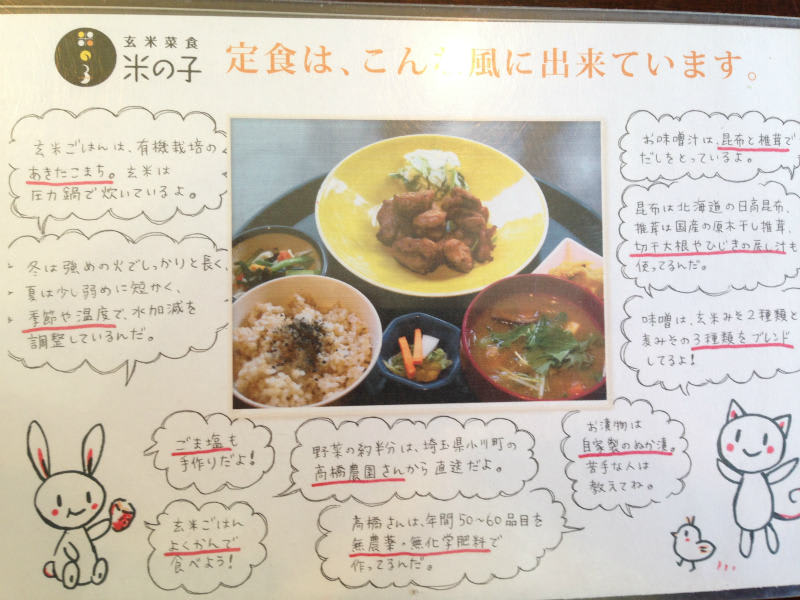 玄米菜食
米の子
定食は、こんな風に出来ています。
玄米ごはんは、有機栽培の
あきたこまち。玄米は
圧力鍋で炊いているよ。
冬は強めの火でしっかりと長く、
夏は少し弱めに短かく、
季節や温度で、水加減を
調整しているんだ。
お味噌汁は、昆布と椎茸で
だしをとっているよ。
昆布は北海道の日高昆布、
椎茸は国産の原木干し椎茸、
切干大根やひじきの戻し汁も
使ってるんだ。
味噌は、玄米みそ2種類と
麦みその3種類をブレンド
してるよ!
ごま塩も
手作りだよ!
玄米ごはん
よくかんで
食べよう!
野菜の約半分は、埼玉県小川町の
高橋農園さんから直送だよ。
高橋さんは、年間50~60品目を
無農薬・無化学肥料で
作ってるんだ。
お漬物は
自家製のぬか漬。
苦手な人は
教えてね。